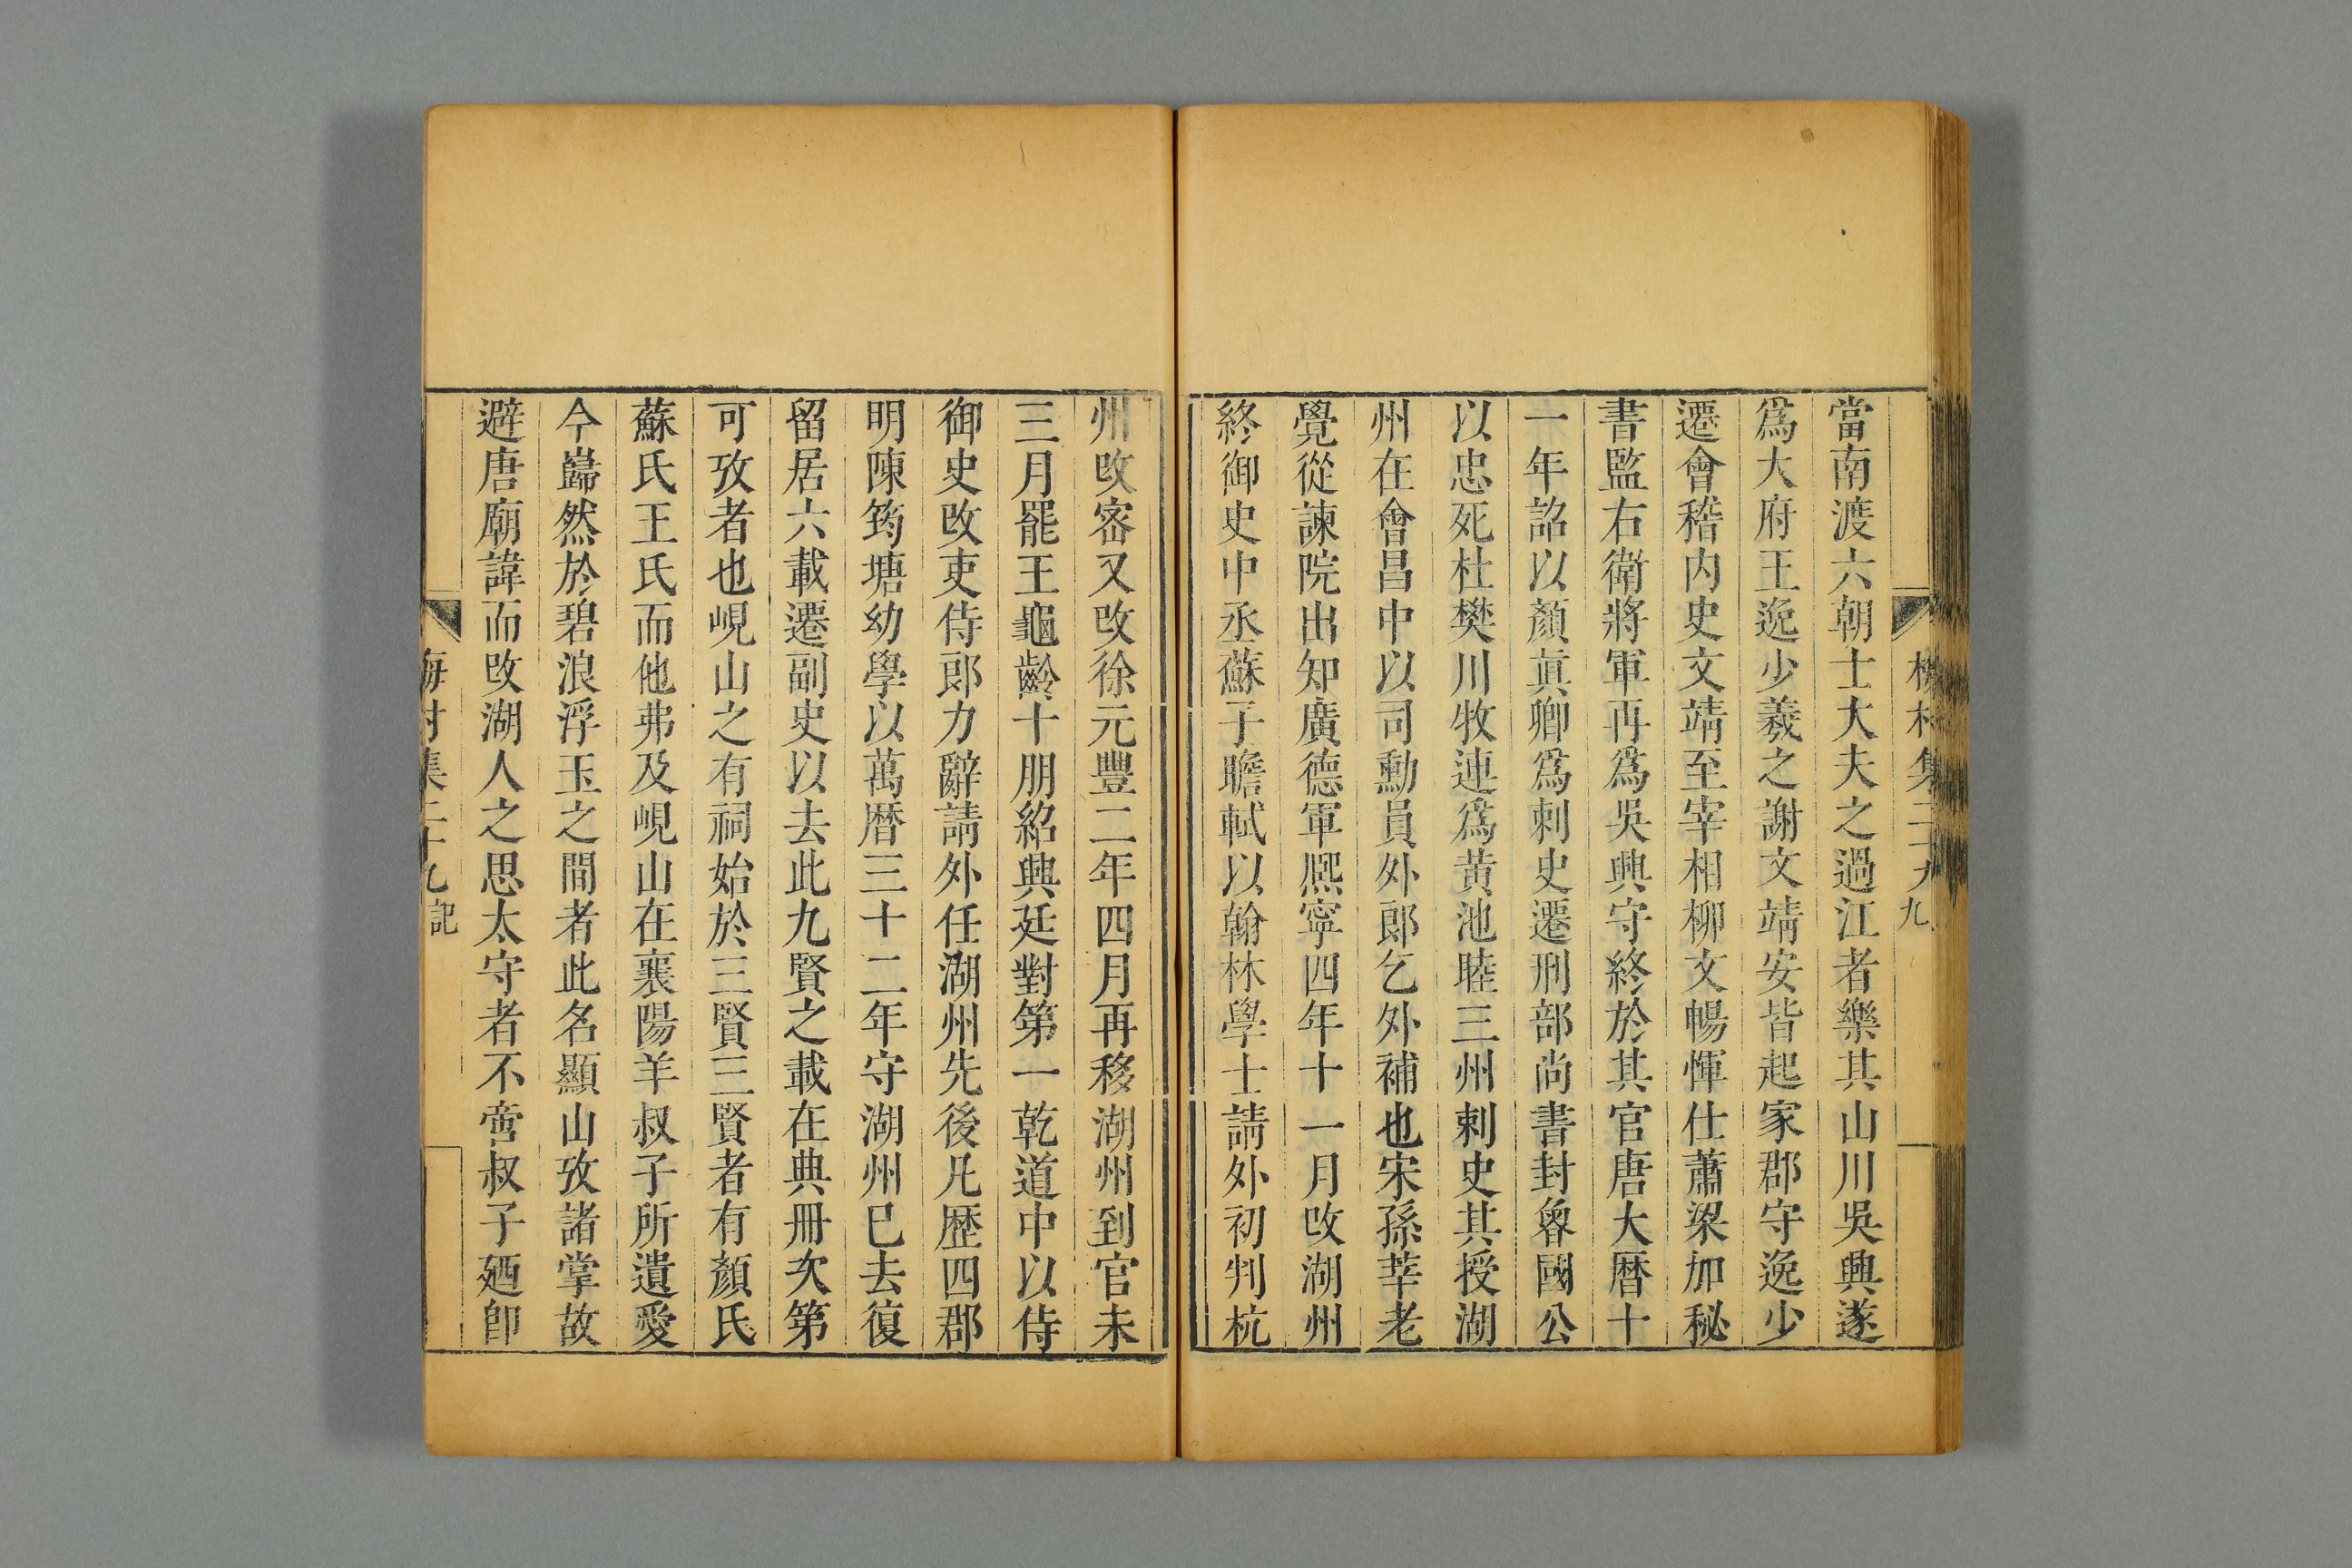 當南渡六朝士大夫之過江者樂其山川吳興遂
爲大府王逸少羲之謝文靖安皆起家郡守逸少
遷會稽內史文靖至宰相柳文暢惲仕蕭梁加秘
書監右衛將軍再爲吳興守終於其官唐大曆十
一年詔以顏眞卿爲刺史遷刑部尚書封魯國公
以忠死杜樊川牧連爲黃池睦三州刺史其授湖
州在會昌中以司勳員外郎乞外補也宋孫莘老
覺從諫院出知廣德軍熈寧四年十一月攺湖州
終御史中丞蘇子瞻軾以翰林學士請外初判杭
州攺密又攺徐元豐二年四月再移湖州到官未
三月罷王龜齡十朋紹興廷對第一乾道中以侍
御史攺吏侍郎力辭請外任湖州先後凡歷四郡
明陳筠塘幼學以萬曆三十二年守湖州已去復
留居六載遷副史以去此九賢之載在典冊次第
可攷者也峴山之有祠始於三賢三賢者有顏氏
蘇氏王氏而他弗及峴山在襄陽羊叔子所遺愛
今巋然於碧浪浮玉之間者此名顯山攷諸掌故
避唐廟諱而攺湖人之思太守者不啻叔子廼卽
集二十九 記
九